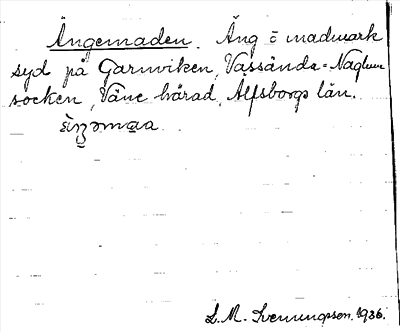 Ängemaden. Äng o madmark
syd på Garnviken, Vassända-Naglum
socken, Väne härad, Älfsborgs län.
L. M. Svenungsson. 1936.